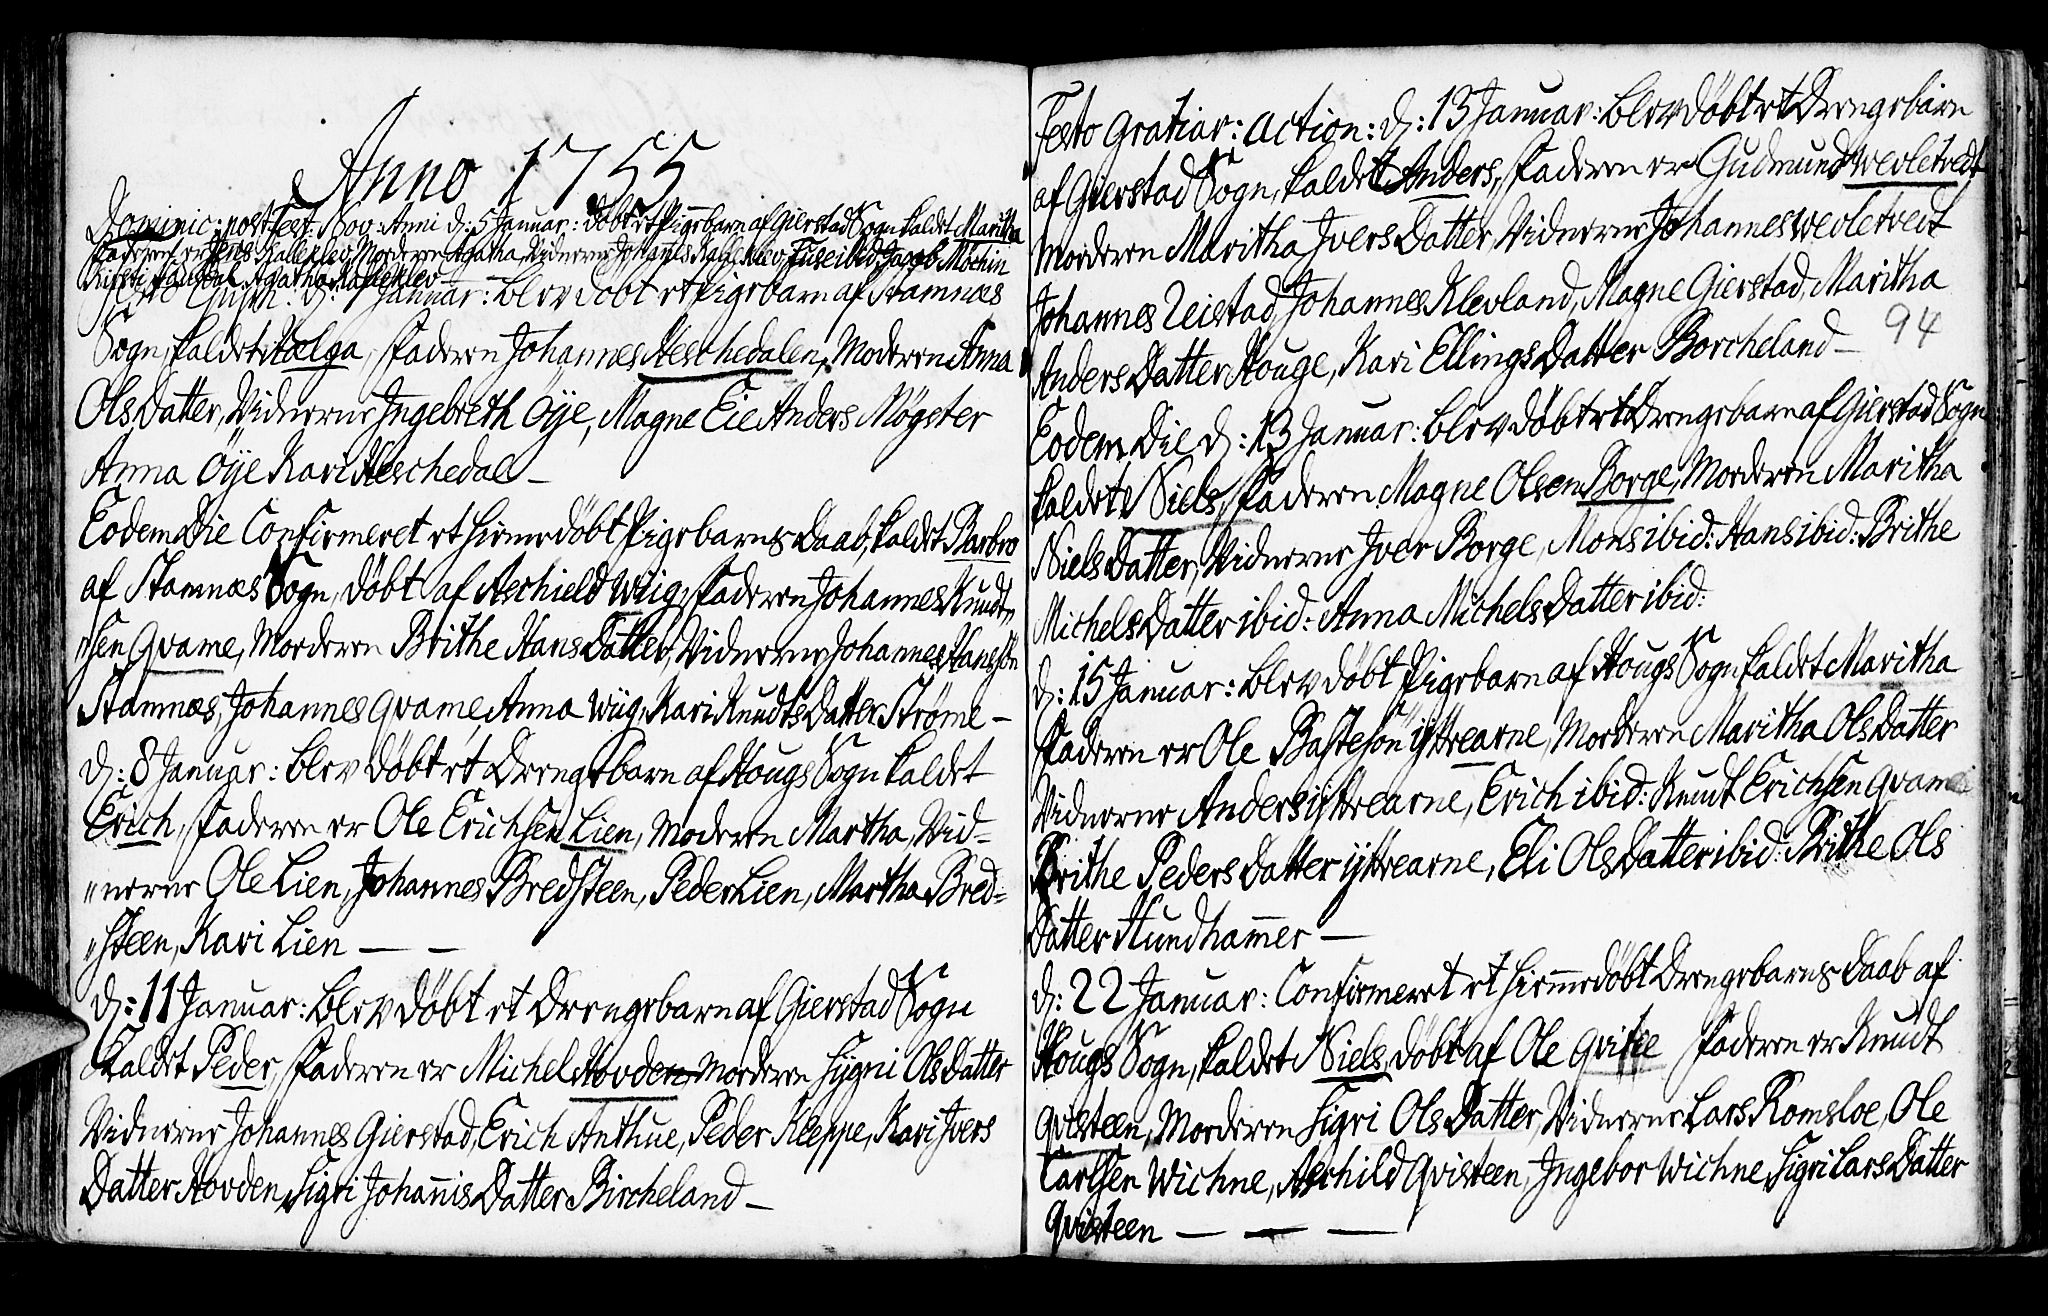 Anno 1755
Dominic: post Fest: Nov: Anni d: 5 Januar: døbt et Pigebarn af Gierstad Sogn kaldet Maritha
Faderen er Kalleklev, Moderen Agatha, Vidnerne Johannes Kalleklev, Tuse ibid, Jacob Mochin
Kirsti Agatha Kalleklev
Festo d: Januar: blev døbt et Pigebarn af Stamnæs
Sogn, kaldet Hælga, Faderen Johannes Heschedalen, Moderen Anna
Ols Datter, Vidnerne Ingebreth Öÿe, Magne Eie Anders Møgster
Anna Öÿe Kari Heschedal –
Eodem Die Confirmeret et hiemedøbt Pigebarns Daab, kaldet Barbro
af Stamnæs Sogn, døbt af Aschield Wiig, Faderen Johannes Knudt„
„sen Qvame, Moderen Brithe Hans Datter, Vidnerne Johannes Hansøn
Stamnæs, Johannes Qvame, Anna Wiig, Kari Knudts Datter Strøme –
d: 8 Januar: blev døbt et Drengebarn af Hougs Sogn kaldet
Erich, Faderen er Ole Erichsen Lien, Moderen Martha, Vid=
„nerne Ole Lien, Johannes Bredsteen, Peder Lien, Martha Bred=
„steen, Kari Lien – –
d: 11 Januar: blev døbt et Drengebarn af Gierstad Sogn
kaldet Peder, Faderen er Michel Hovden Moderen Sÿgni Ols Datter
Vidnerne Johannes Gierstad, Erich Anthue, Peder Kleppe, Kari Ivers
Datter Hovden, Sigri Johannis Datter Bircheland –
Festo Gratiar: Action: d: 13 Januar: blev døbt et Drengebarn
af Gierstad Sogn, kaldet Anders, Faderen er Gudmund Wevletvedt
Moderen Maritha Ivers Datter, Vidnerne Johannes Wevletvedt
Johannes Reistad, Johannes Klevland, Magne Gierstad, Maritha
94
Anders Datter Houge, Kari Ellings Datter Borcheland –
Eodem Die d: 13 Januar: blev døbt et Drengebarn af Gierstad Sogn
kaldet Niels, Faderen Magne Olsen Borge, Moderen Maritha
Niels Datter, Vidnerne Iver Borge, Mons ibid: Hans ibid: Brithe
Michels Datter ibid: Anna Michels Datter ibid:
d: 15 Januar: blev døbt Pigebarn af Hougs Sogn kaldet Maritha
Faderen er Ole Bastesøn ÿttrearne, Moderen Maritha Ols Datter
Vidnerne Anders ÿttrearne, Erich ibid: Knudt Erichsen Qvame
Brithe Peders Datter ÿttrearne, Eli Ols Datter ibid: Brithe Ols
Datter Hundhammer –
d: 22 Januar: Confirmeret et hiemmedøbt Drengebarns Daab af
Hougs Sogn, kaldet Niels, døbt af Ole Faderen er Knudt
Qvisteen, Moderen Sigri Ols Datter, Vidnerne Lars Romsloe, Ole
Carlsen Wichne, Aschild Qvisteen, Ingebor Wichne, Sigri Lars Datter
Qvisteen – – –